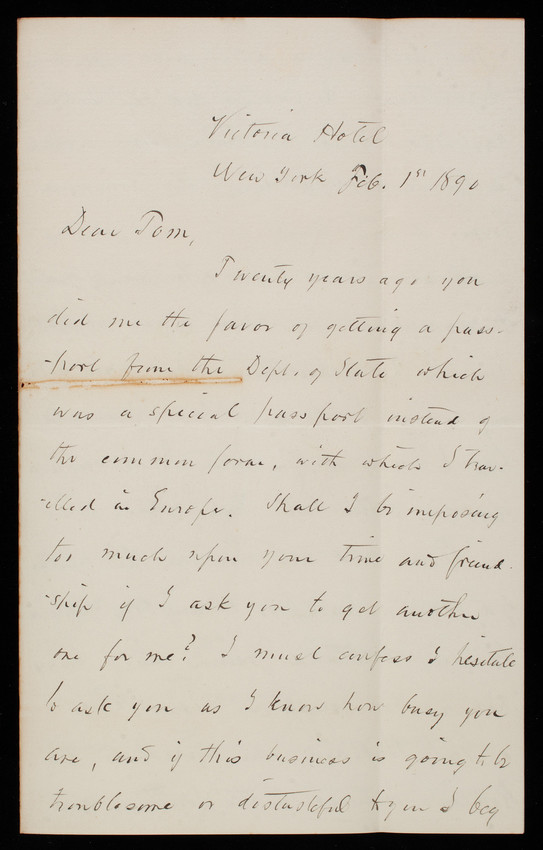 Victoria Hotel
New York Feb. 1st 1890
Dear Tom,
Twenty years ago you
did me the favor of getting a pass-
-port from the Dept. of State which
was a special passport instead of
the common form, with which I trav-
-elled in Europe. Shall I be imposing
too much upon your time and friend-
-ship if I ask you to get another
one for me? I must confess I hesitate
to ask you as I know how busy you
are, and if this business is going to be
troublesome or distasteful to you I beg